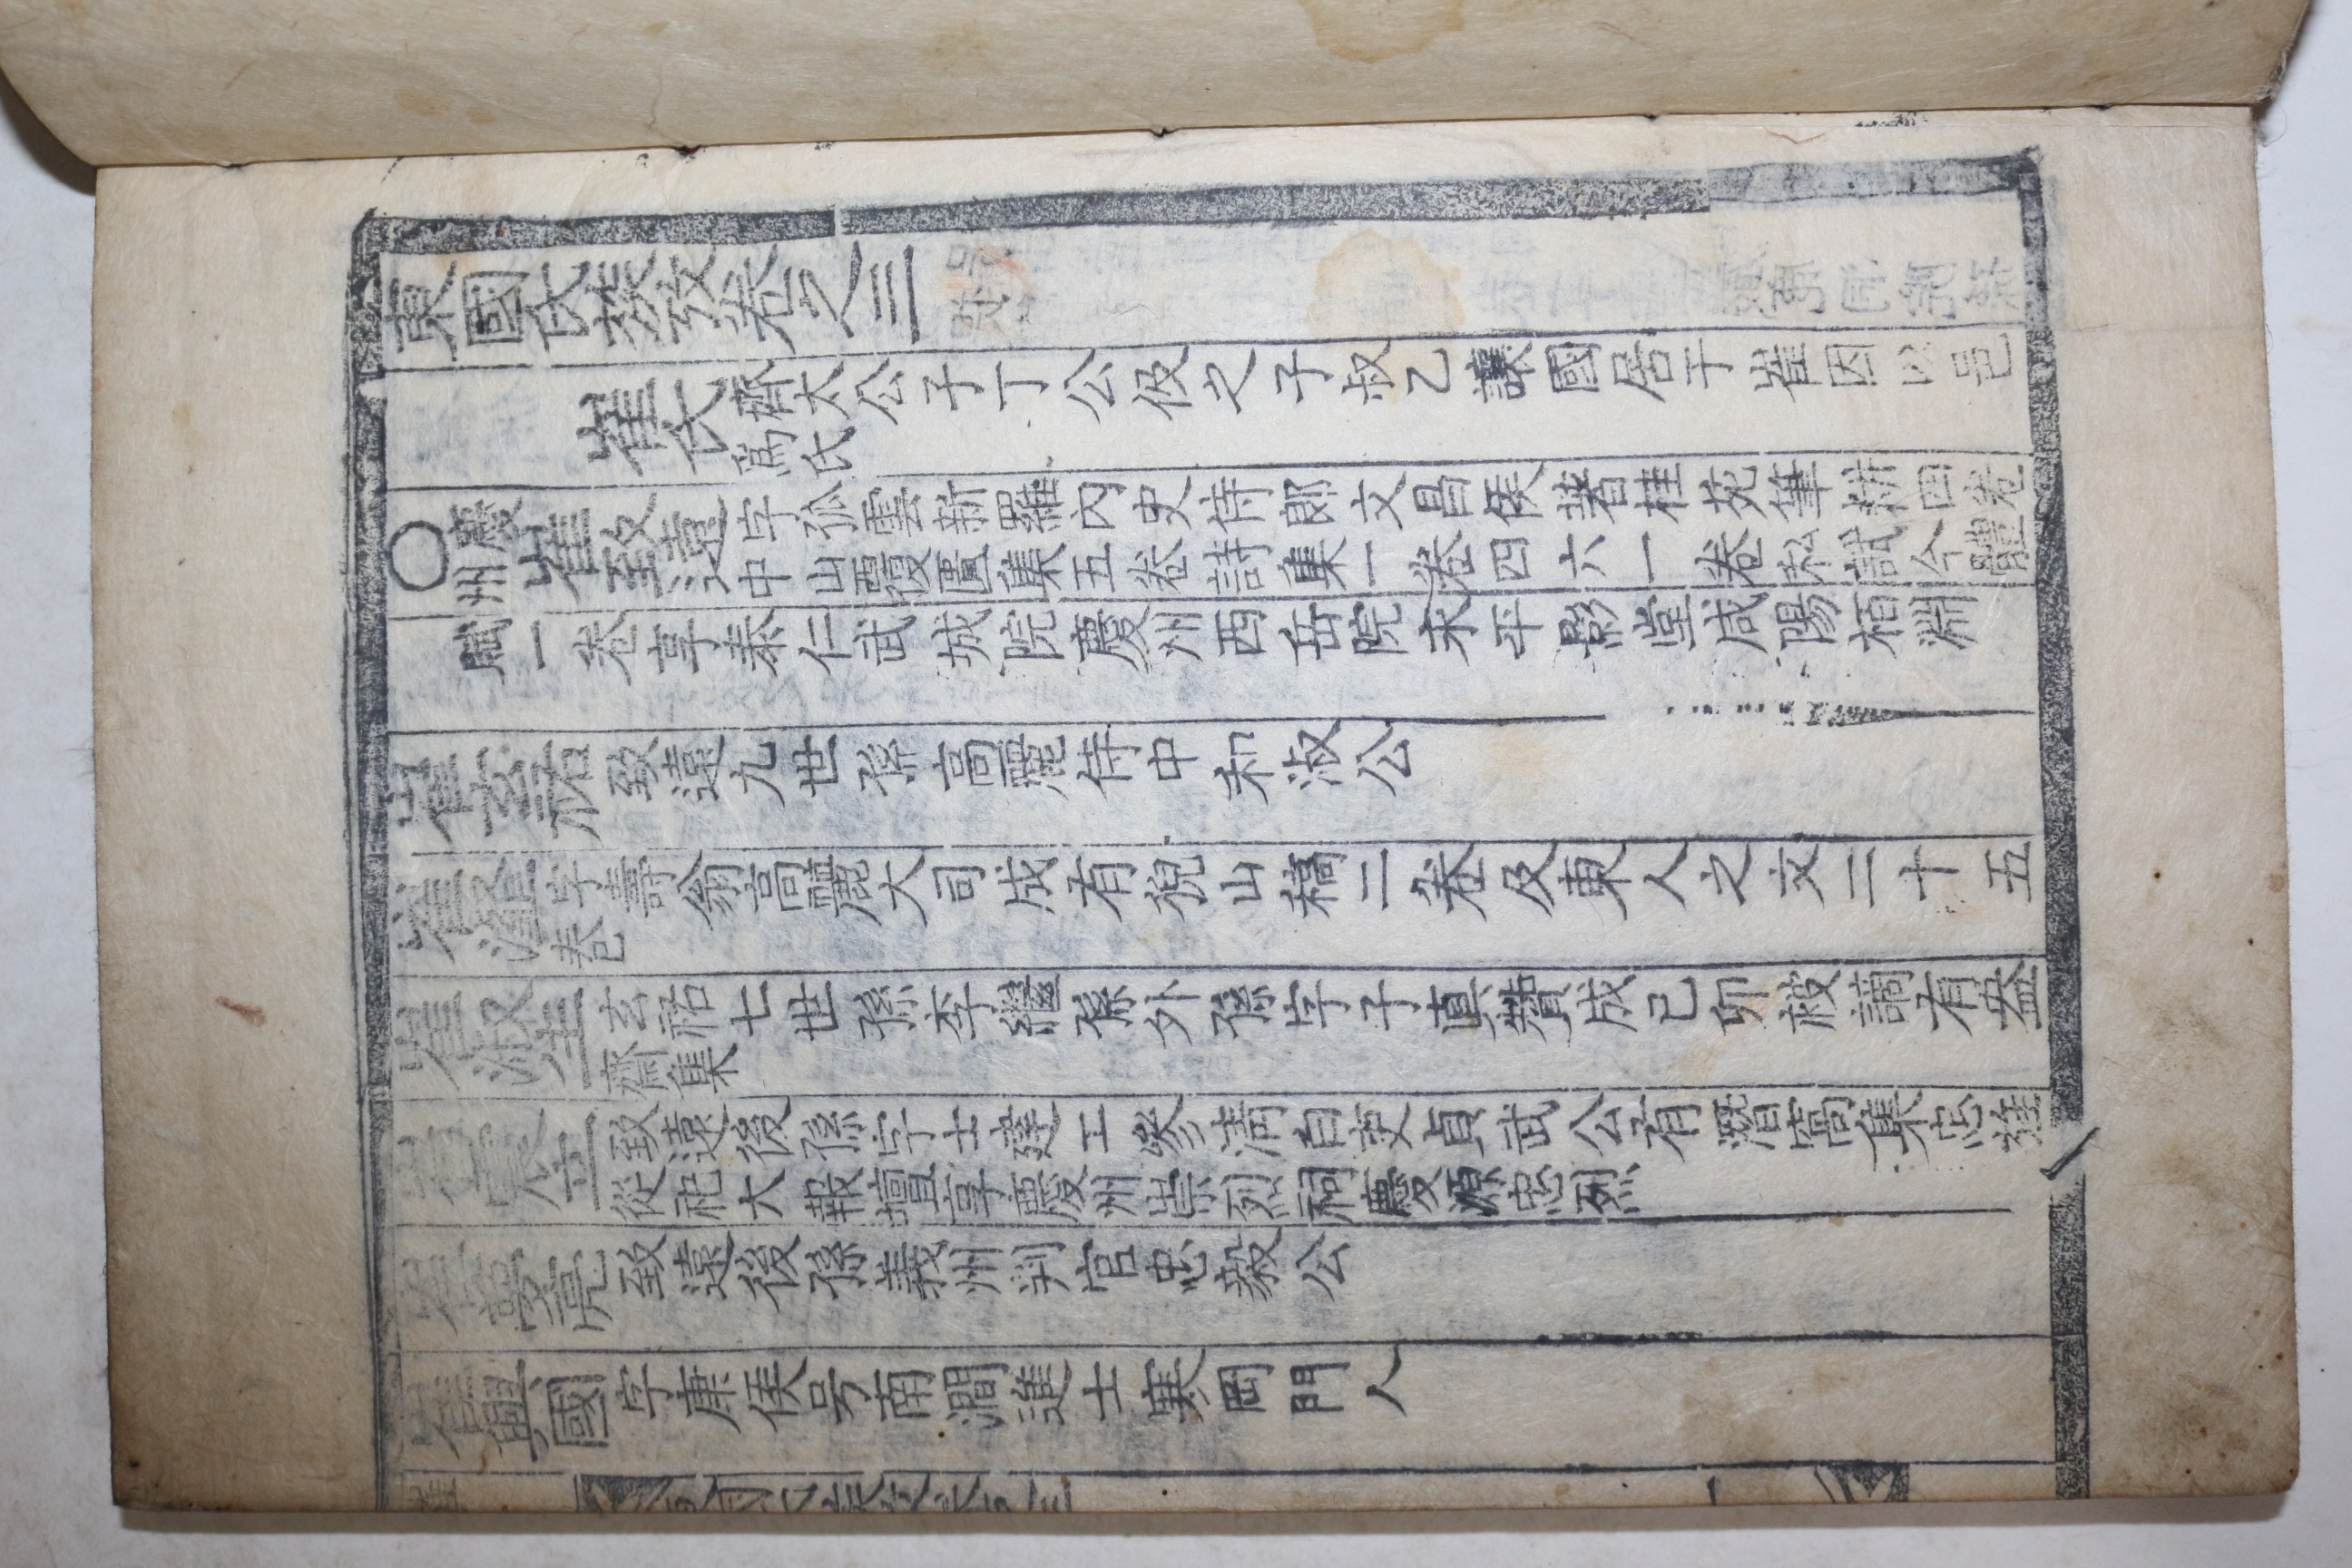 東國氏族攷卷之三
崔氏 齊太公子丁公伋之子叔乙讓國居于崔因以邑
爲氏
○慶州崔致遠 字孤雲新羅內史侍郞文昌侯著桂苑筆耕四卷
中山覆匱集五卷詩集一卷四六一卷私試今體
賦一卷享泰仁武城院慶州西岳院永平影堂咸陽栢淵
崔玄祐 致遠九世孫高麗侍中和淑公
崔瀣 字壽翁高麗大司成有猊山稿二卷及東人之文二十五
卷
崔淑生 玄祐七世孫李繼孫外孫字子眞贊成己卯被謫有盎
齋集
崔震立 致遠後孫字士建工參淸白吏貞武公有潛窩集忠旌
從祀大報壇享慶州崇烈祠慶源忠烈
崔夢亮 致遠後孫義州判官忠毅公
崔興國 字康侯号南澗進士寒岡門人
一